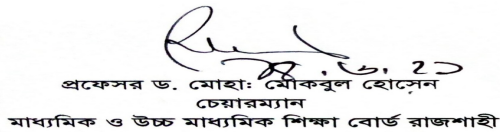 প্রফেসর ড. মোহা: মোকবুল হোসেন
চেয়ারম্যান
মাধ্যমিক ও উচ্চ মাধ্যমিক শিক্ষা বোর্ড রাজশাহী